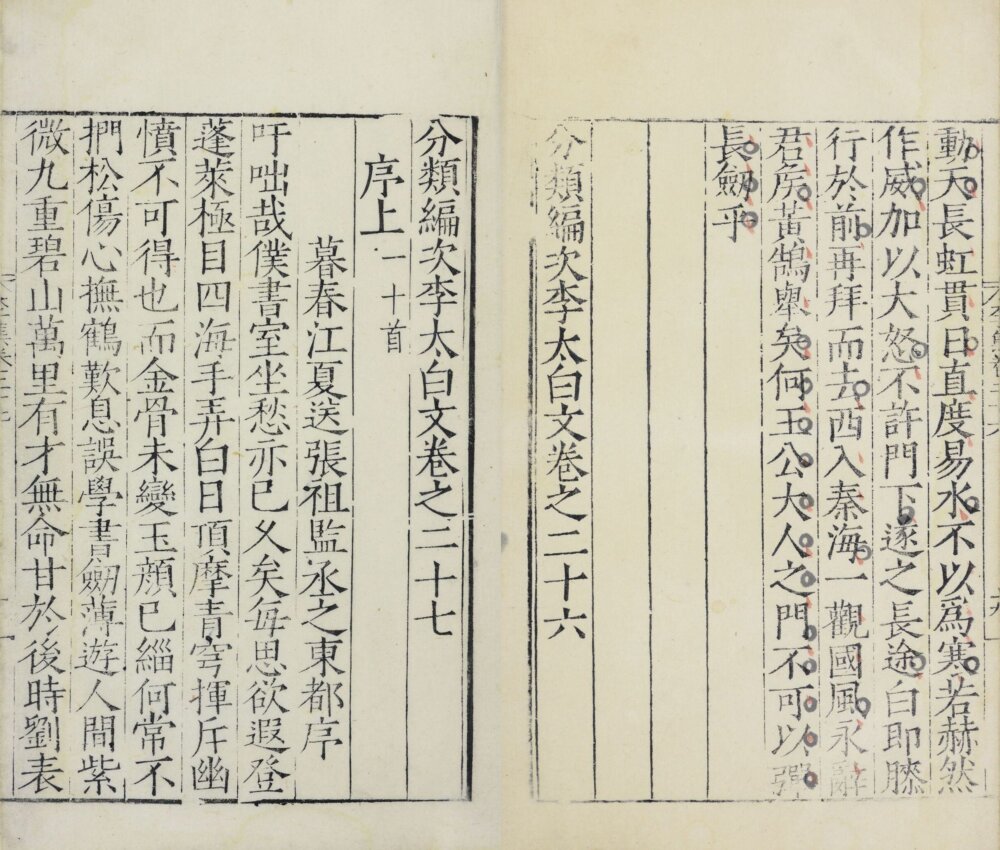 動天長虹貫日直度易水不以爲寒若赫然
作威加以大怒不許門下逐之長途白即膝
行於前再拜而去西入秦海一觀國風永辭
君侯黃鵠舉矣何王公大人之門不可以彈
長劒乎
分類編次李太白文卷之二十六
分類編次李太白文卷之二十七
序上一十首
暮春江夏送張祖監丞之東都序
吁咄哉僕書室坐愁亦已久矣每思欲遐登
蓬萊極目四海手弄白日頂摩青穹揮斥幽
憤不可得也而金骨未變玉顔已緇何常不
捫松傷心撫鶴歎息誤學書劒薄遊人間紫
微九重碧山萬里有才無命甘於後時劉表